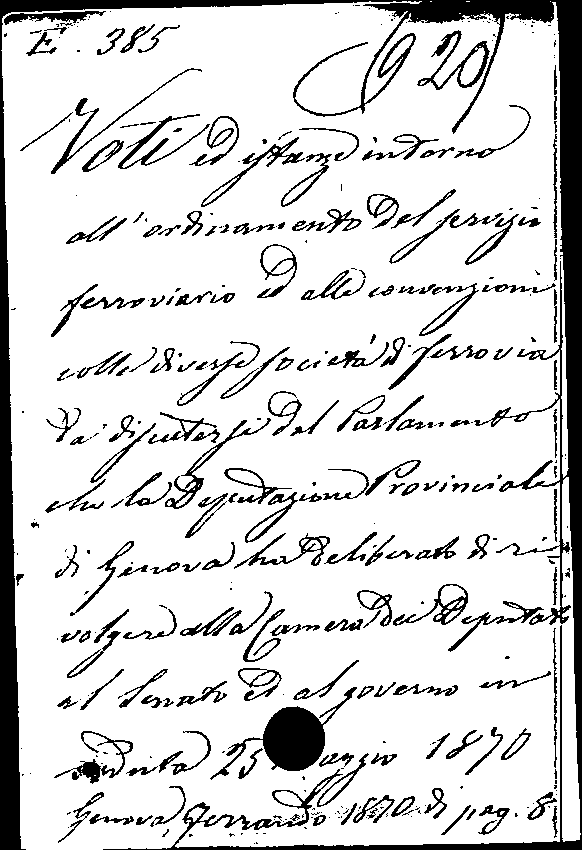 E. 385
(920)
Voti ed istanze intorno
all'ordinamento del servizio
ferroviario ed alle convenzioni
colle diverse società di ferrovia
da discutersi dal Parlamento
che la Deputazione Provinciale
di Genova ha deliberato di ri-
volgere alla Camera dei Deputati
al Senato ed al governo in
seduta 25 Maggio 1870
Genova, Ferrando 1870 di pag. 8